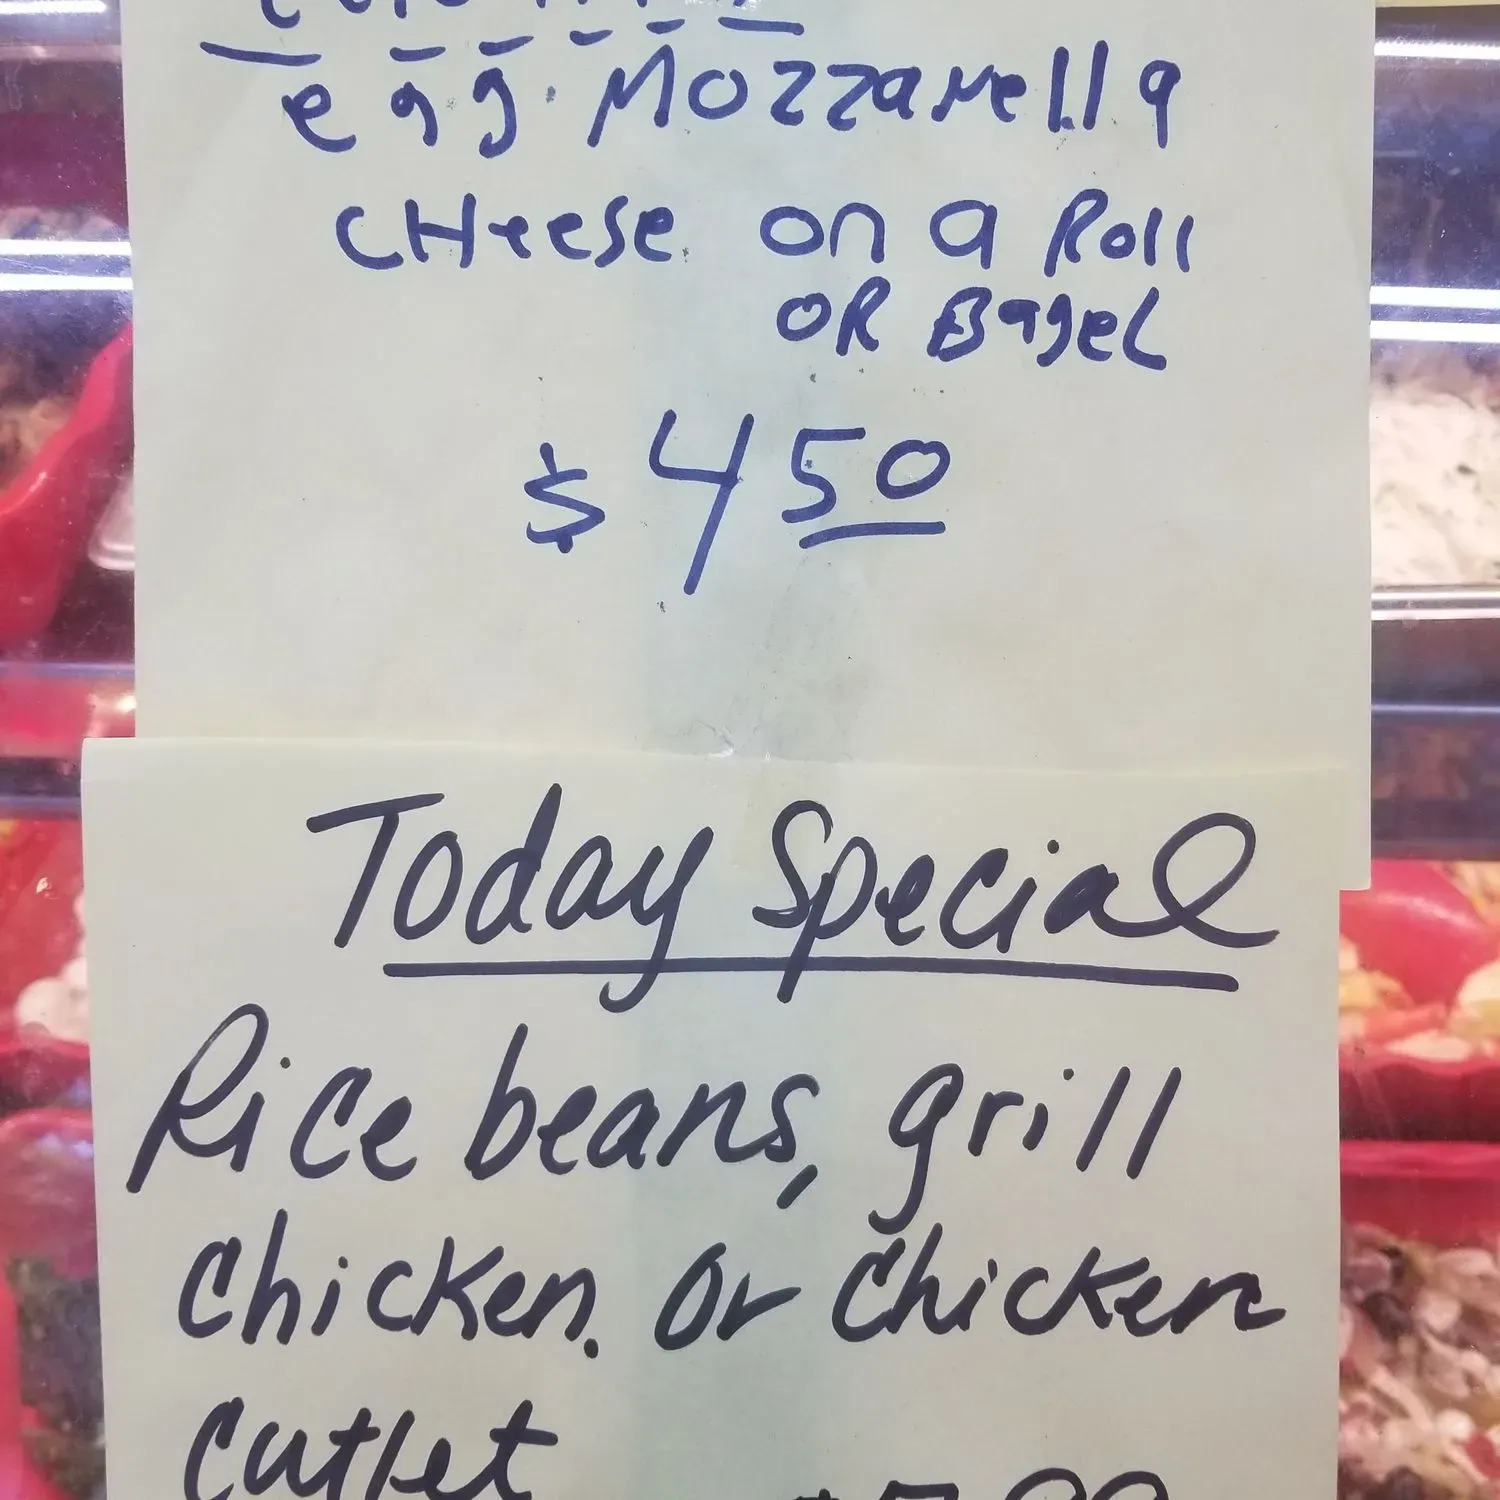 egg. Mozzarella
CHeese on a Roll
OR Bagel
$ 4 50
Today Special
Rice beans, grill
chicken. or chicken
cutlet